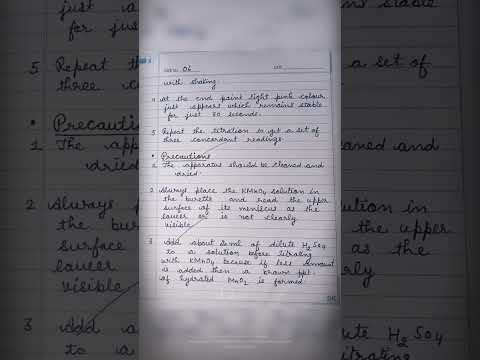 06
with shaking.
4 At the end point light pink colour
just appears which remains stable
for just 30 seconds.
5 Repeat the titration to get a set of
three concordant readings.
• Precautions
1. The apparatus should be cleaned and
dried.
2 Always place the KMnO4 solution in
the burette and read the upper
surface of its meniscus as the
lower or is not clearly
visible
3 Add about 20ml of dilute H2SO4
to a solution before titrating
with KMnO4 because if less amount
is added then a brown ppt.
of hydrated MnO2 is formed.